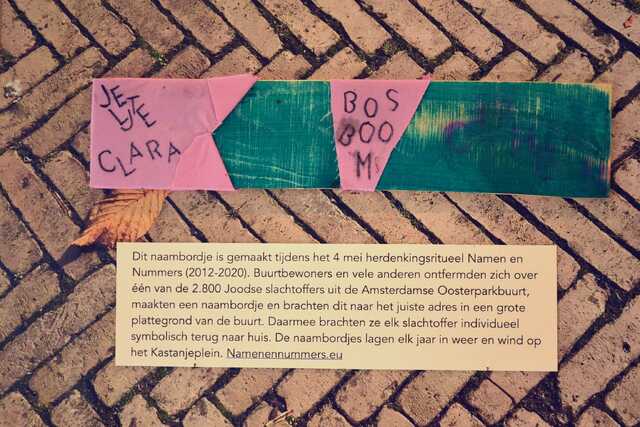 JETJE
CLARA
BOS
BOO
M
Dit naambordje is gemaakt tijdens het 4 mei herdenkingsritueel Namen en
Nummers (2012-2020). Buurtbewoners en vele anderen ontfermden zich over
één van de 2.800 Joodse slachtoffers uit de Amsterdamse Oosterparkbuurt,
maakten een naambordje en brachten dit naar het juiste adres in een grote
plattegrond van de buurt. Daarmee brachten ze elk slachtoffer individueel
symbolisch terug naar huis. De naambordjes lagen elk jaar in weer en wind op
het Kastanjeplein. Namenennummers.eu